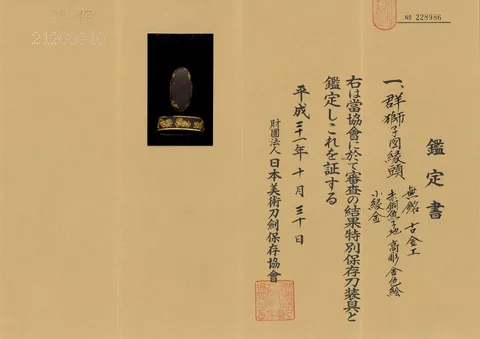 NO 228986
鑑定書
一、群獅子図縁頭 無銘 古金工
赤銅魚子地 高彫 金色絵
小縁金
右は當協會に於て審査の結果特別保存刀装具と
鑑定しこれを証する
平成二十一年十月三十日
財團法人 日本美術刀剣保存協會